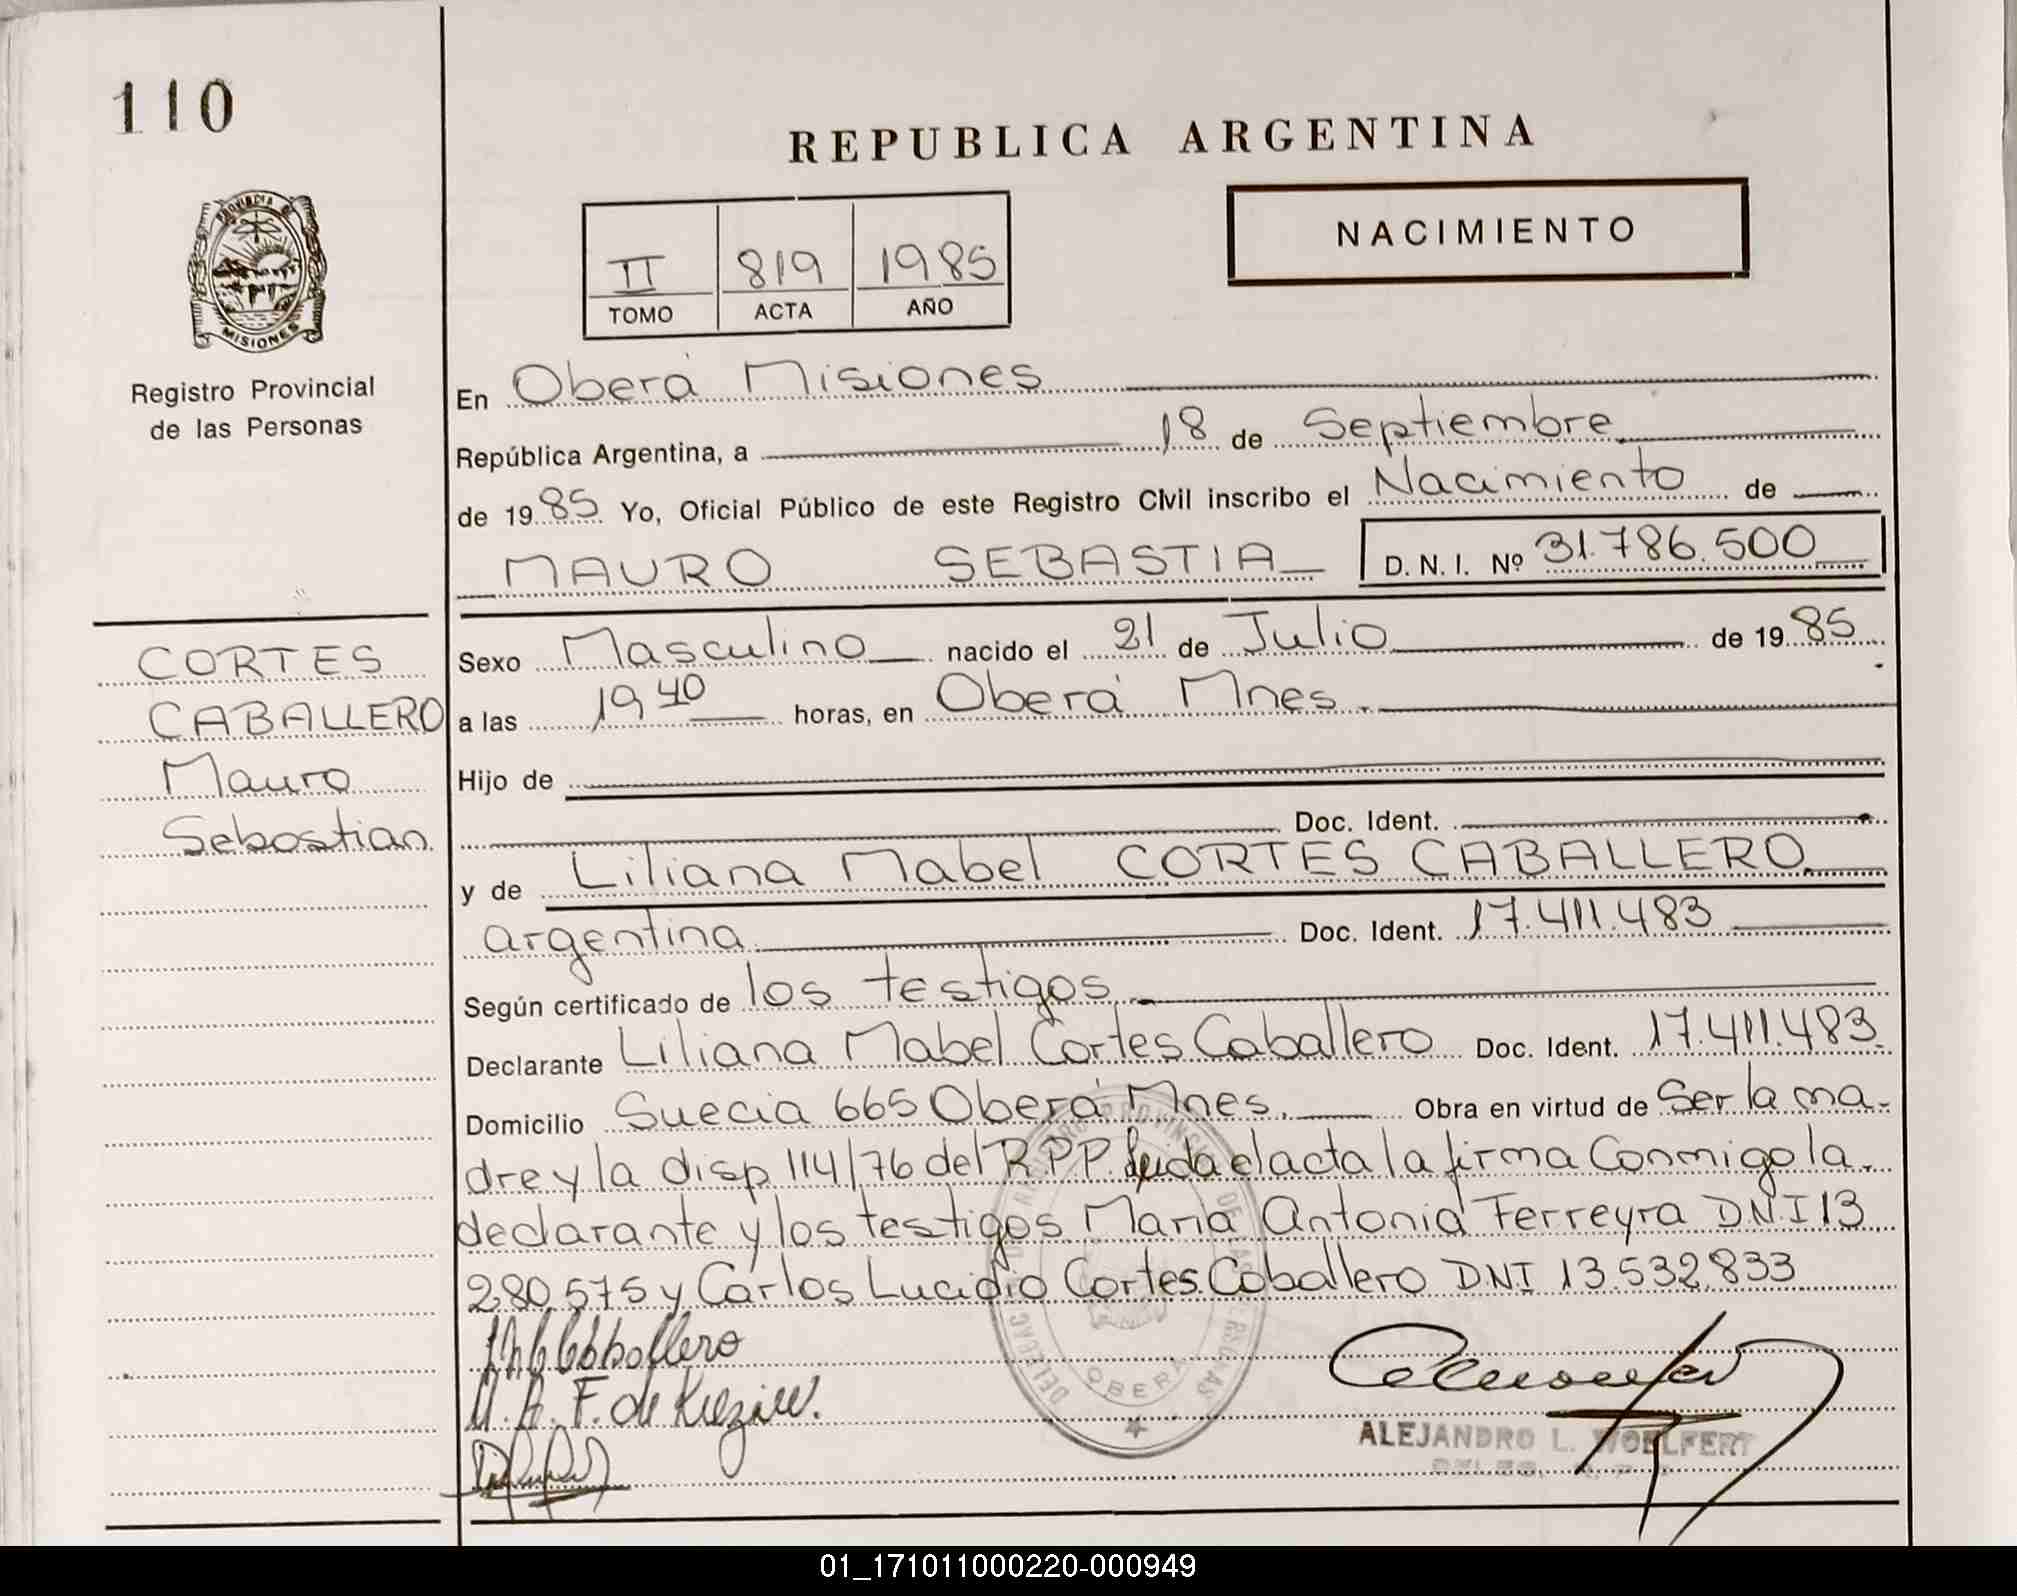 110
REPUBLICA ARGENTINA
NACIMIENTO
II 819 1985
TOMO ACTA AÑO
PROVINCIA DE
MISIONES
Registro Provincial
de las Personas
CORTES
CABALLERO
Mauro
Sebastian
En Oberá Misiones
República Argentina, a 18 de Septiembre
de 1985 Yo, Oficial Público de este Registro Civil inscribo el Nacimiento de
MAURO SEBASTIA D. N. I. Nº 31.786.500
Sexo Masculino nacido el 21 de Julio de 1985
a las 19 40 horas, en Oberá Mnes.
Hijo de
Doc. Ident.
y de Liliana Mabel CORTES CABALLERO.
argentina Doc. Ident. 17.411.483
Según certificado de los testigos.
Declarante Liliana Mabel Cortes Caballero Doc. Ident. 17.411.483.
Domicilio Suecia 665 Oberá Mnes. Obra en virtud de Ser la ma-
dre y la disp 114/76 del R.P.P. leida el acta la firma Conmigo la
declarante y los testigos Maria Antonia Ferreyra D.N.I 13
280.575 y Carlos Lucidio Cortes Caballero DNI 13.532.833
M. A. F. de
OBERA
ALEJANDRO L. WOELFERT
01_171011000220-000949